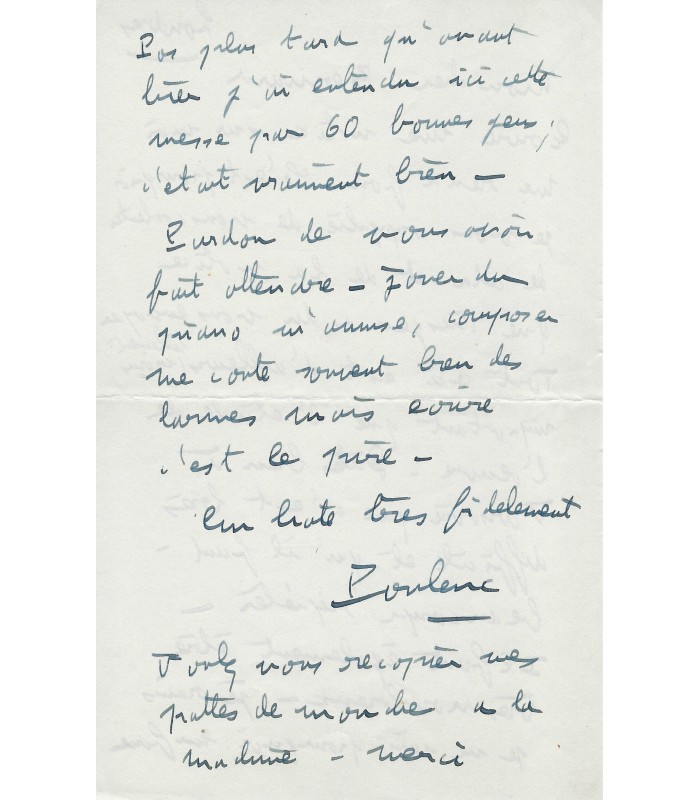 Pas plus tard qu'avant
hier j'ai entendu ici cette
messe par 60 bonnes gens,
c'etait vraiment bien —
Pardon de vous avoir
fait attendre — Jouer du
piano m'amuse, composer
me coute souvent bien des
larmes mais écrire
c'est le pire —
En hate très fidelement
Poulenc
Voulez vous recopier mes
pattes de mouche a la
machine — merci